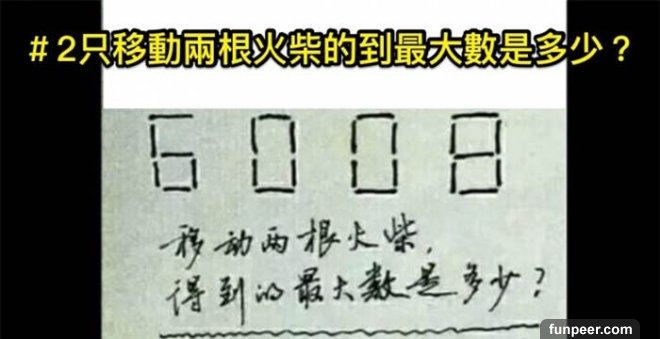 #2只移動兩根火柴的到最大數是多少？
6008
移动两根火柴,
得到的最大数是多少?
funpeer.com